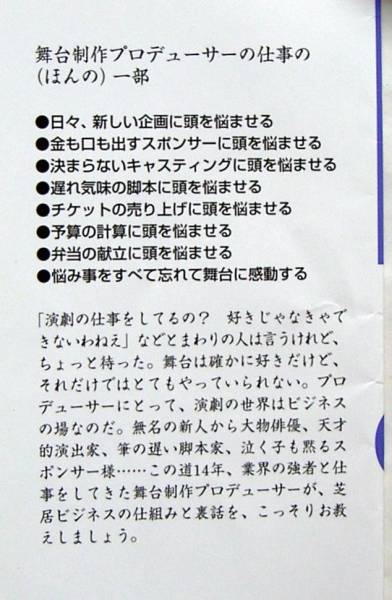 舞台制作プロデューサーの仕事の
(ほんの)一部
●日々、新しい企画に頭を悩ませる
●金も口も出すスポンサーに頭を悩ませる
●決まらないキャスティングに頭を悩ませる
●遅れ気味の脚本に頭を悩ませる
●チケットの売り上げに頭を悩ませる
●予算の計算に頭を悩ませる
●弁当の献立に頭を悩ませる
●悩み事をすべて忘れて舞台に感動する
「演劇の仕事をしてるの？　好きじゃなきゃで
きないわねえ」などとまわりの人は言うけれど、
ちょっと待った。舞台は確かに好きだけど、
それだけではとてもやっていられない。プロ
デューサーにとって、演劇の世界はビジネス
の場なのだ。無名の新人から大物俳優、天才
的演出家、筆の遅い脚本家、泣く子も黙るス
ポンサー様……この道14年、業界の強者と仕
事をしてきた舞台制作プロデューサーが、芝
居ビジネスの仕組みと裏話を、こっそりお教
えしましょう。